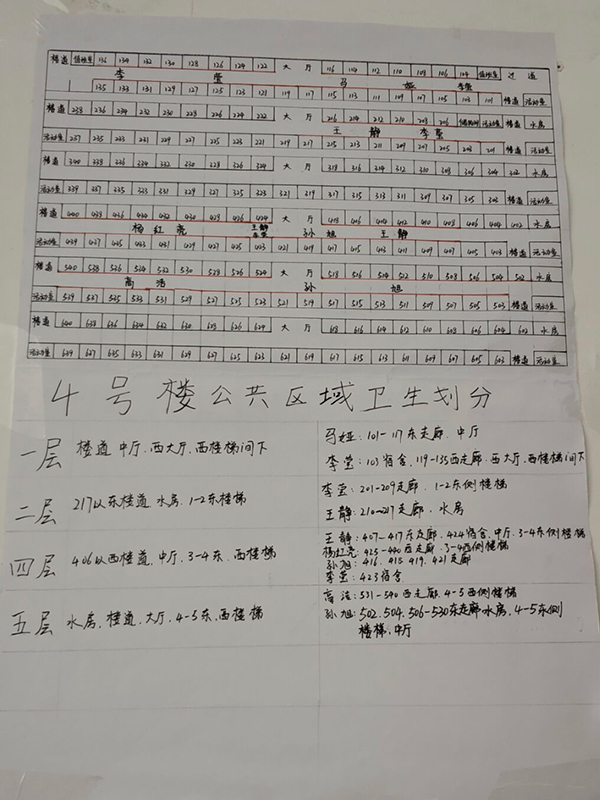 楼道 值班室 136 134 132 130 128 126 124 122 大厅 116 114 112 110 108 106 104 值班室 过道
李 莹 马 娅 李莹
135 133 131 129 127 125 123 121 119 117 115 113 111 109 107 105 103 101 楼道 活动室
楼道 238 236 234 232 230 228 226 224 222 大厅 216 214 212 210 208 206 活动室 楼道 水房
王 静 李 莹
活动室 237 235 233 231 229 227 225 223 221 219 217 215 213 211 209 207 205 203 201 楼道 活动室
楼道 340 338 336 334 332 330 328 326 324 大厅 318 316 314 312 310 308 306 304 302 水房
活动室 339 337 335 333 331 329 327 325 323 321 319 317 315 313 311 309 307 305 303 楼道 活动室
楼道 440 438 436 434 432 430 428 426 424 大厅 418 416 414 412 410 408 406 404 402 水房
杨 红 亮 王静 李莹 孙 旭 王 静
活动室 439 437 435 433 431 429 427 425 423 421 419 417 415 413 411 409 407 405 403 楼道 活动室
楼道 540 538 536 534 532 530 528 526 524 大厅 518 516 514 512 510 508 506 504 502 水房
高 洁 孙 旭
活动室 539 537 535 533 531 529 527 525 523 521 519 517 515 513 511 509 507 505 503 楼道 活动室
楼道 640 638 636 634 632 630 628 626 624 大厅 618 616 614 612 610 608 606 604 602 水房
活动室 639 637 635 633 631 629 627 625 623 621 619 617 615 613 611 609 607 605 603 楼道 活动室
4号楼公共区域卫生划分
一层 楼道 中厅、西大厅、西楼梯间下
马娅:101-117东走廊、中厅
李莹:103宿舍、119-135西走廊、西大厅、西楼梯间下
二层 217以东楼道、水房、1-2东楼梯
李莹:201-209走廊、1-2东侧楼梯
王静:210-217走廊、水房
四层 406以西楼道、中厅、3-4东、西楼梯
王静:407-417东走廊、424宿舍、中厅、3-4东侧楼梯
杨红亮:425-440西走廊、3-4西侧楼梯
孙旭:416、418、419、421走廊
李莹:423宿舍
五层 水房、楼道、大厅、4-5东、西楼梯
高洁:531-540西走廊、4-5西侧楼梯
孙旭:502、504、506-530东走廊水房、4-5东侧
楼梯、中厅